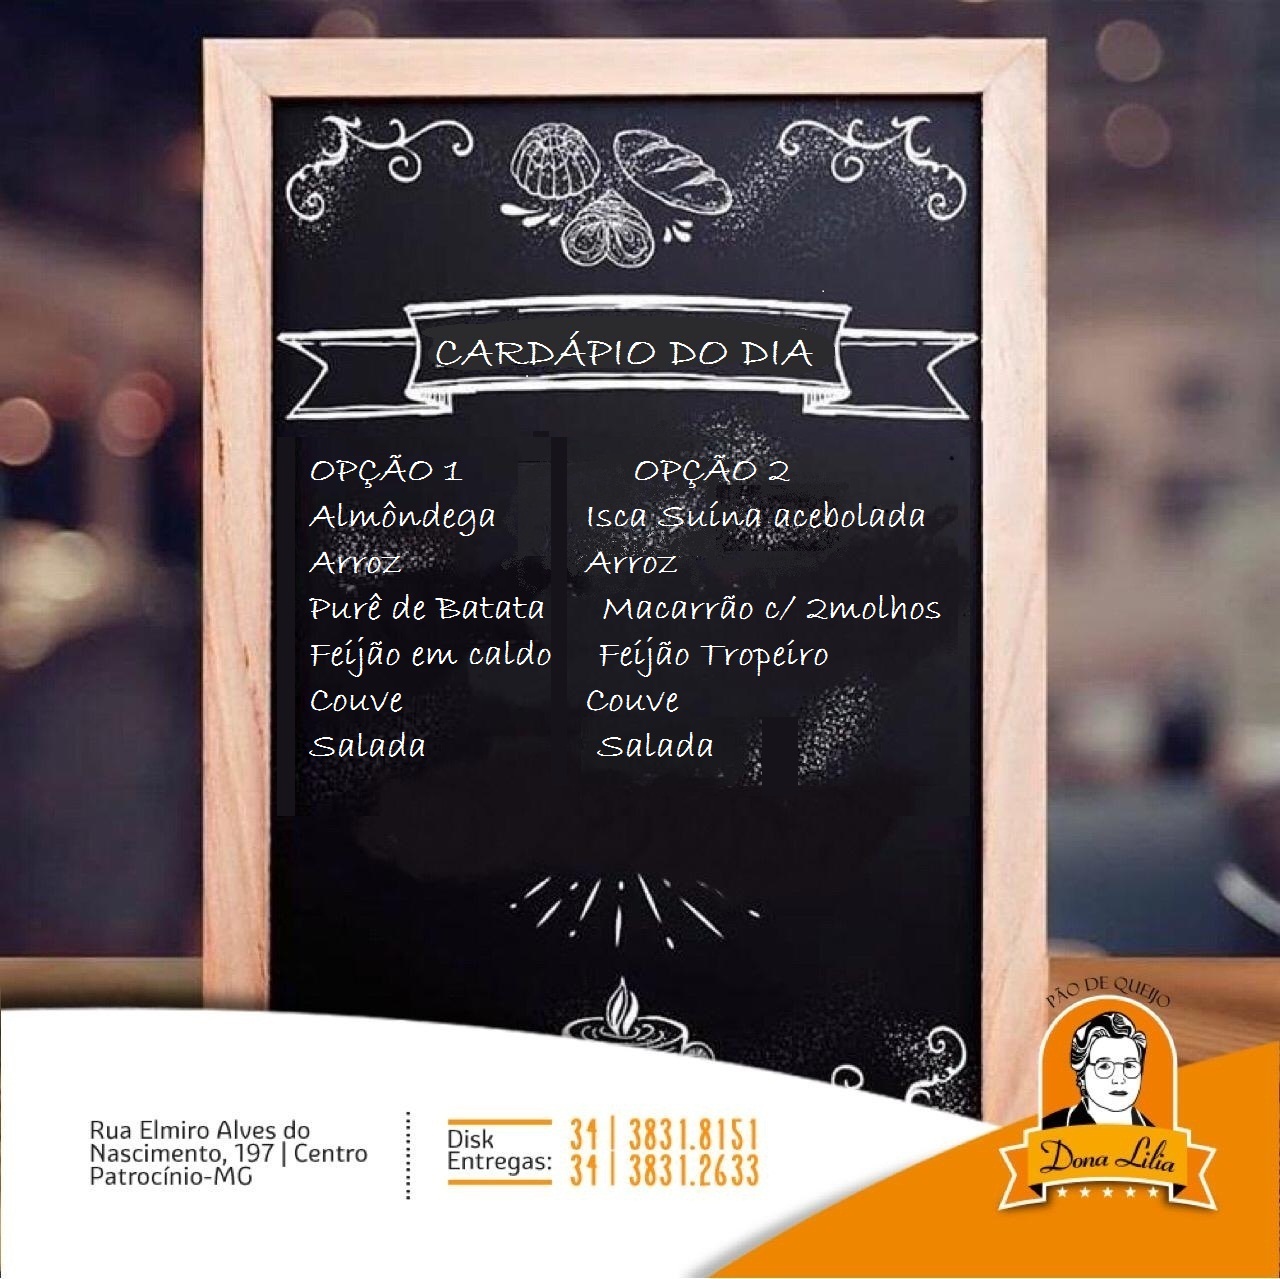 CARDÁPIO DO DIA
OPÇÃO 1
Almôndega
Arroz
Purê de Batata
Feijão em caldo
Couve
Salada
OPÇÃO 2
Isca Suína acebolada
Arroz
Macarrão c/ 2molhos
Feijão Tropeiro
Couve
Salada
Rua Elmiro Alves do
Nascimento, 197 | Centro
Patrocínio-MG
Disk
Entregas:
34 | 3831.8151
34 | 3831.2633
PÃO DE QUEIJO
Dona Lilia